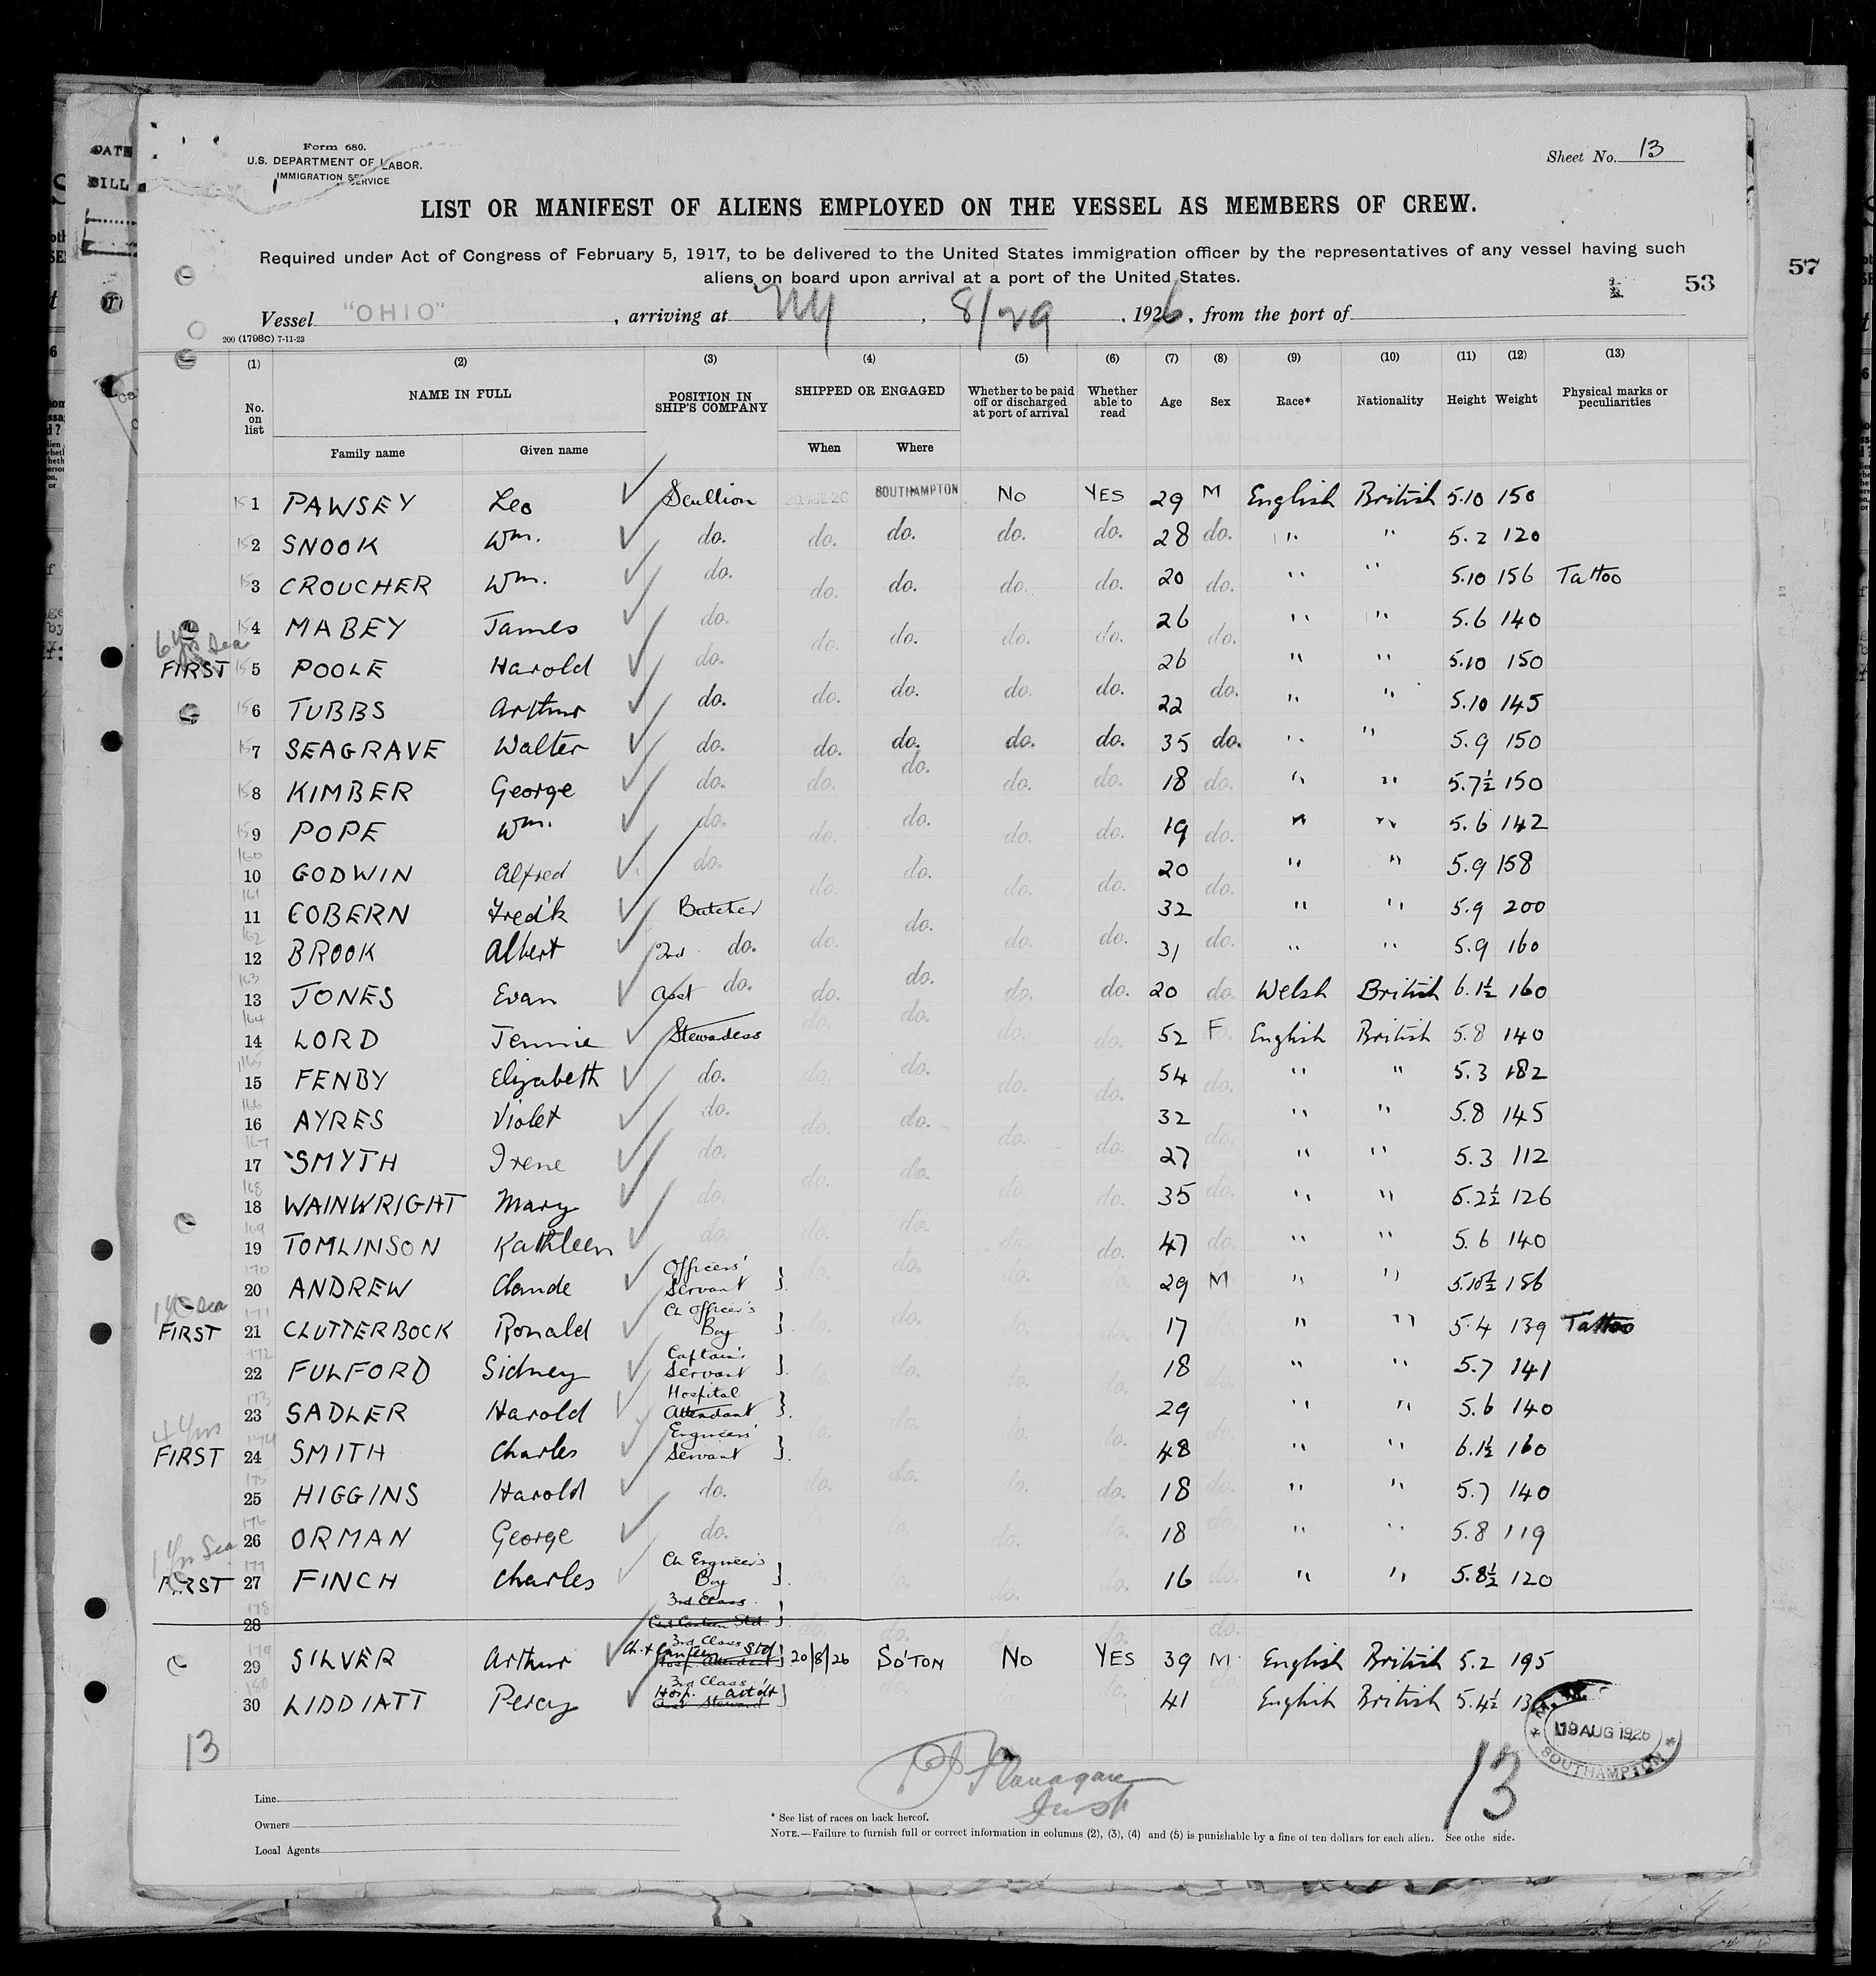 Form 680.
U.S. DEPARTMENT OF LABOR.
IMMIGRATION SERVICE
Sheet No. 13
LIST OR MANIFEST OF ALIENS EMPLOYED ON THE VESSEL AS MEMBERS OF CREW.
Required under Act of Congress of February 5, 1917, to be delivered to the United States immigration officer by the representatives of any vessel having such
aliens on board upon arrival at a port of the United States.
53
57
Vessel "OHIO", arriving at NY, 8/29, 1926, from the port of
200 (1798C) 7-11-23
(1) (2) (3) (4) (5) (6) (7) (8) (9) (10) (11) (12) (13)
No. on list NAME IN FULL POSITION IN SHIP'S COMPANY SHIPPED OR ENGAGED Whether to be paid off or discharged at port of arrival Whether able to read Age Sex Race* Nationality Height Weight Physical marks or peculiarities
Family name Given name When Where
1 PAWSEY Leo Scullion 20 AUG 26 SOUTHAMPTON No YES 29 M English British 5.10 150
2 SNOOK Wm. do. do. do. do. do. 28 do. " " 5.2 120
3 CROUCHER Wm. do. do. do. do. do. 20 do. " " 5.10 156 Tattoo
4 MABEY James do. do. do. do. do. 26 do. " " 5.6 140
6 yrs Sea
FIRST 5 POOLE Harold do. 26 " " 5.10 150
6 TUBBS Arthur do. do. do. do. do. 22 do. " " 5.10 145
7 SEAGRAVE Walter do. do. do. do. do. 35 do. " " 5.9 150
8 KIMBER George do. do. do. do. do. 18 do. " " 5.7½ 150
9 POPE Wm. do. do. do. do. do. 19 do. " " 5.6 142
160
10 GODWIN Alfred do. do. do. do. do. 20 do. " " 5.9 158
161
11 COBERN Fred'k Butcher 32 " " 5.9 200
162
12 BROOK Albert 2nd do. do. do. do. do. 31 do. " " 5.9 160
163
13 JONES Evan Asst do. do. do. do. do. 20 do. Welsh British 6.1½ 160
164
14 LORD Jennie Stewardess do. do. do. do. 52 F English British 5.8 140
165
15 FENBY Elizabeth do. do. do. do. do. 54 do. " " 5.3 182
166
16 AYRES Violet do. do. do. do. do. 32 do. " " 5.8 145
167
17 SMYTH Irene do. do. do. do. do. 27 " " 5.3 112
168
18 WAINWRIGHT Mary do. do. do. 35 do. " " 5.2½ 126
169
19 TOMLINSON Kathleen do. do. do. do. do. 47 do. " " 5.6 140
170
20 ANDREW Claude Officers' Servant do. do. do. 29 M " " 5.10½ 156
1 yr Sea
171
FIRST 21 CLUTTERBOCK Ronald Ch Officer's Boy do. do. do. 17 " " 5.4 139 Tattoo
172
22 FULFORD Sidney Captain's Servant do. do. do. do. 18 do. " " 5.7 141
173
23 SADLER Harold Hospital Attendant do. do. do. do. 29 do. " " 5.6 140
4 yrs
174
FIRST 24 SMITH Charles Engineers' Servant 48 " " 6.1½ 160
175
25 HIGGINS Harold do. do. do. do. do. 18 do. " " 5.7 140
176
26 ORMAN George do. do. do. do. do. 18 do. " " 5.8 119
1 yr Sea
177
FIRST 27 FINCH Charles Ch Engineer's Boy do. do. do. do. 16 do. " " 5.8½ 120
178
28 3rd Class
179
29 SILVER Arthur 3rd Class Ch. + Canteen Std 20/8/26 SO'TON No YES 39 M English British 5.2 195
180
30 LIDDIATT Percy 3rd Class Hosp. Att'dt 41 English British 5.4½
13
19 AUG 1926
SOUTHAMPTON
Flanagan
Insp
13
Line
Owners
Local Agents
* See list of races on back hereof.
NOTE.—Failure to furnish full or correct information in columns (2), (3), (4) and (5) is punishable by a fine of ten dollars for each alien. See othe side.